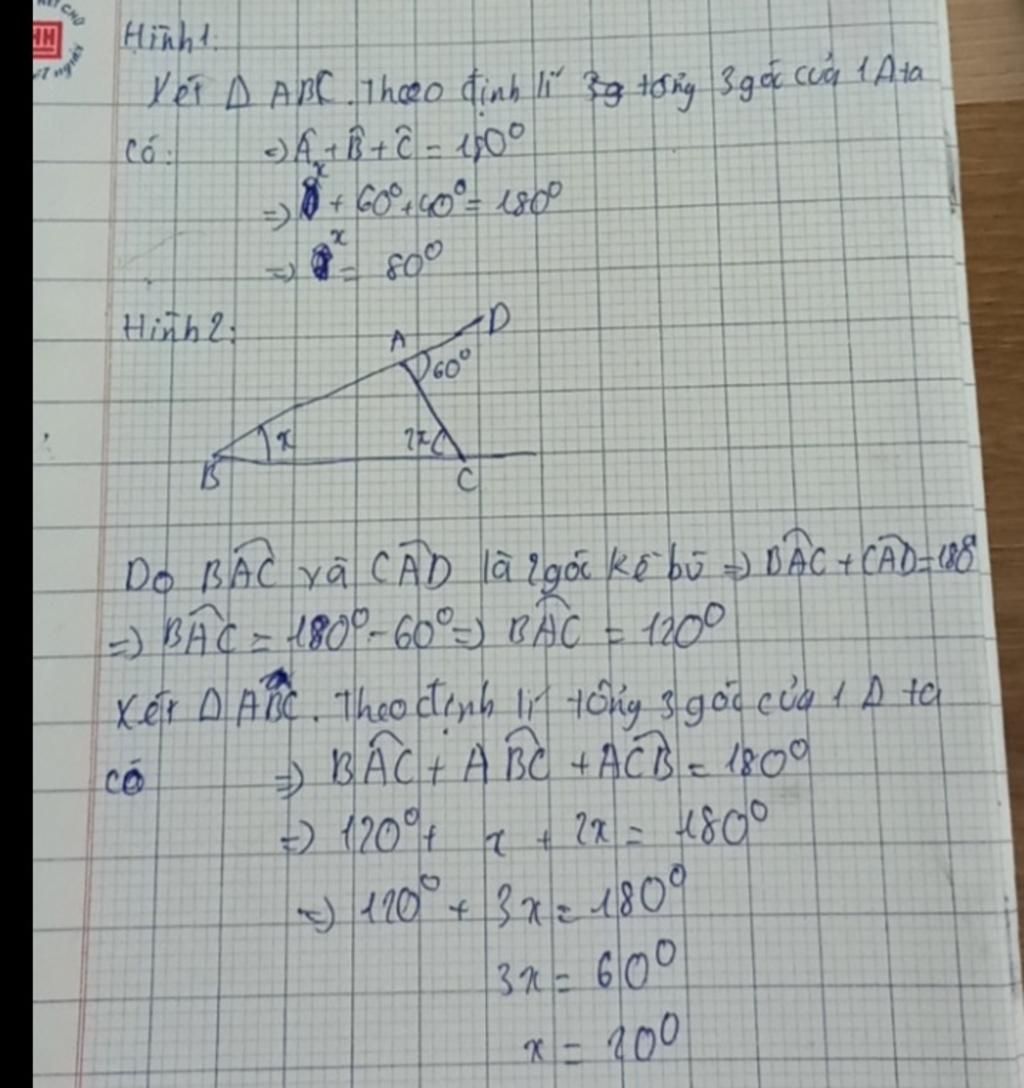 Hình 1.
Xét Δ ABC. Theo định lí tổng 3 góc của 1 Δ ta
có: => Â + B̂ + Ĉ = 180°
=> x + 60° + 40° = 180°
=> x = 80°
Hình 2:
A D
60°
x 2x
B C
Do BÂC và CÂD là 2 góc kề bù => BÂC + CÂD = 180°
=> BÂC = 180° - 60° => BÂC = 120°
Xét Δ ABC. Theo định lí tổng 3 góc của 1 Δ ta
có => BÂC + AB̂C + AĈB = 180°
=> 120° + x + 2x = 180°
=> 120° + 3x = 180°
3x = 60°
x = 20°